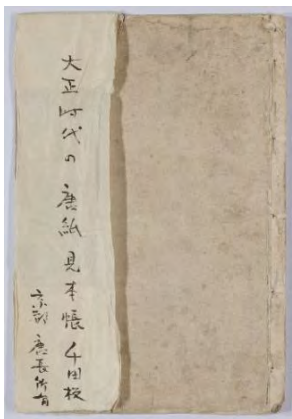 大正時代の唐紙見本帳 千田板
京都 唐長所有